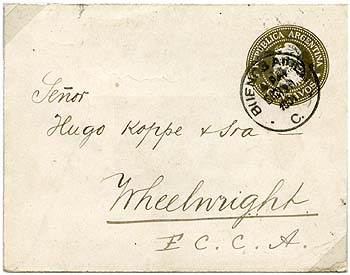 REPUBLICA ARGENTINA
BUENOS AIRES
C.
Señor
Hugo Koppe & Sra
Wheelwright
F C. C. A.